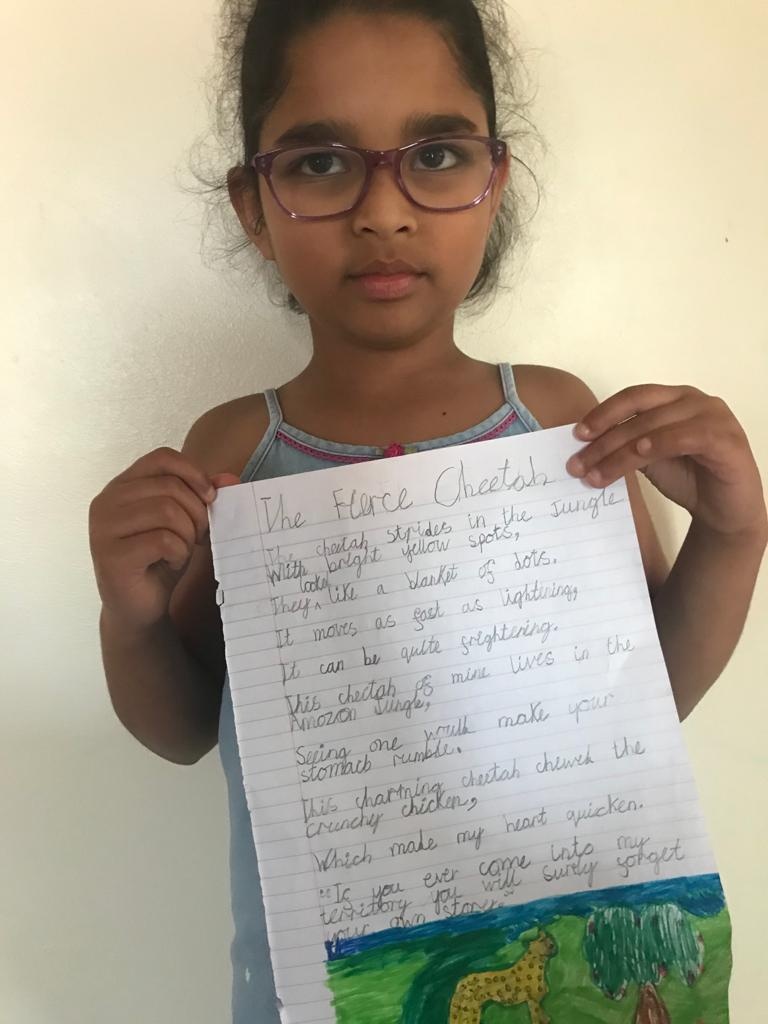 The Fierce Cheetah
The cheetah strides in the Jungle
With bright yellow spots,
They looked like a blanket of dots.
It moves as fast as lightening,
It can be quite frightening.
This cheetah of mine lives in the
Amozon Jungle,
Seeing one would make your
stomach rumble.
This charming cheetah chewed the
crunchy chicken,
Which made my heart quicken.
"If you ever come into my
territory you will surely forget
your own